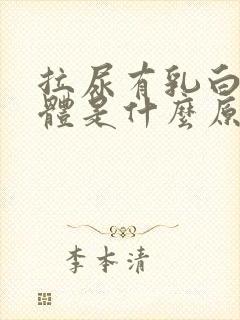 拉尿有乳白
體是什麼原
李本清